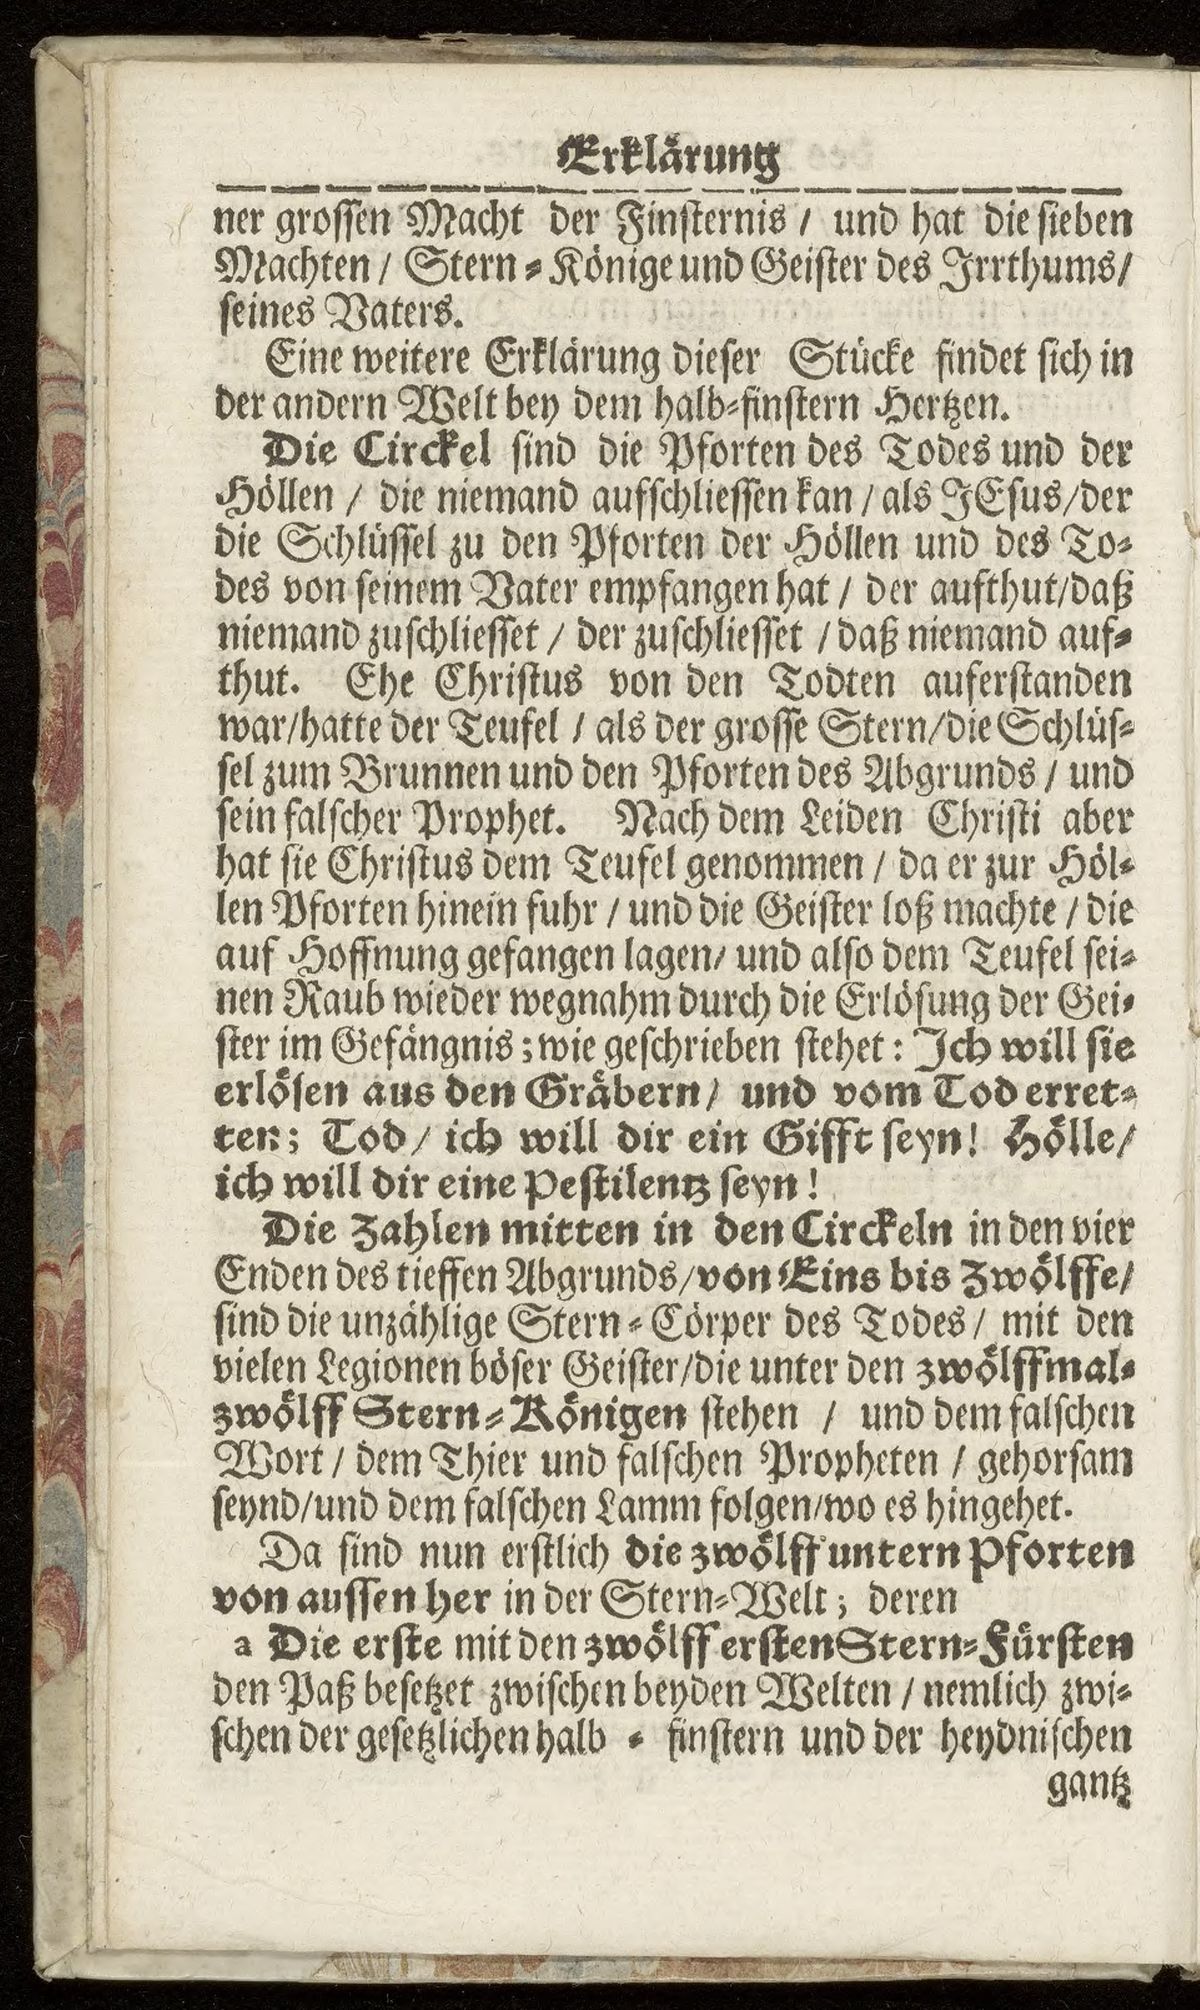 Erklärung
ner grossen Macht der Finsternis / und hat die sieben
Machten / Stern-Könige und Geister des Irrthums/
seines Vaters.
Eine weitere Erklärung dieser Stücke findet sich in
der andern Welt bey dem halb-finstern Hertzen.
Die Circkel sind die Pforten des Todes und der
Höllen / die niemand aufschliessen kan / als JEsus/der
die Schlüssel zu den Pforten der Höllen und des To-
des von seinem Vater empfangen hat / der aufthut/daß
niemand zuschliesset / der zuschliesset / daß niemand auf-
thut. Ehe Christus von den Todten auferstanden
war/hatte der Teufel / als der grosse Stern/die Schlüs-
sel zum Brunnen und den Pforten des Abgrunds / und
sein falscher Prophet. Nach dem Leiden Christi aber
hat sie Christus dem Teufel genommen / da er zur Höl-
len Pforten hinein fuhr / und die Geister loß machte / die
auf Hoffnung gefangen lagen/ und also dem Teufel sei-
nen Raub wieder wegnahm durch die Erlösung der Gei-
ster im Gefängnis; wie geschrieben stehet: Ich will sie
erlösen aus den Gräbern/ und vom Tod erret-
ten; Tod / ich will dir ein Gifft seyn! Hölle/
ich will dir eine Pestilentz seyn!
Die Zahlen mitten in den Circkeln in den vier
Enden des tieffen Abgrunds/von Eins bis Zwölffe/
sind die unzählige Stern-Cörper des Todes / mit den
vielen Legionen böser Geister/die unter den zwölffmal-
zwölff Stern-Königen stehen / und dem falschen
Wort / dem Thier und falschen Propheten / gehorsam
seynd/und dem falschen Lamm folgen/wo es hingehet.
Da sind nun erstlich die zwölff untern Pforten
von aussen her in der Stern-Welt; deren
a Die erste mit den zwölff ersten Stern-Fürsten
den Paß besetzet zwischen beyden Welten / nemlich zwi-
schen der gesetzlichen halb-finstern und der heydnischen
gantz